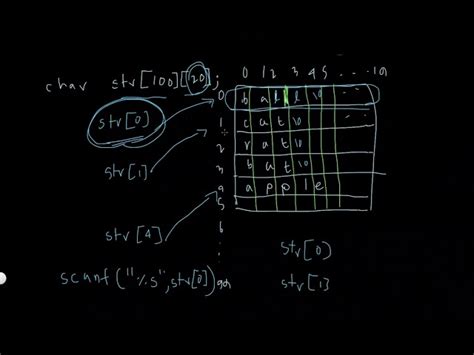 char str[100][20];
0 1 2 3 4 5 ... 19
str[0]
0 b a l l \0 ...
1 c a t \0 ...
str[1]
2 r a t \0
3 b a t \0
4 a p p l e
5
6
str[4]
str[0]
scanf("%s",str[0]) 99
str[1]